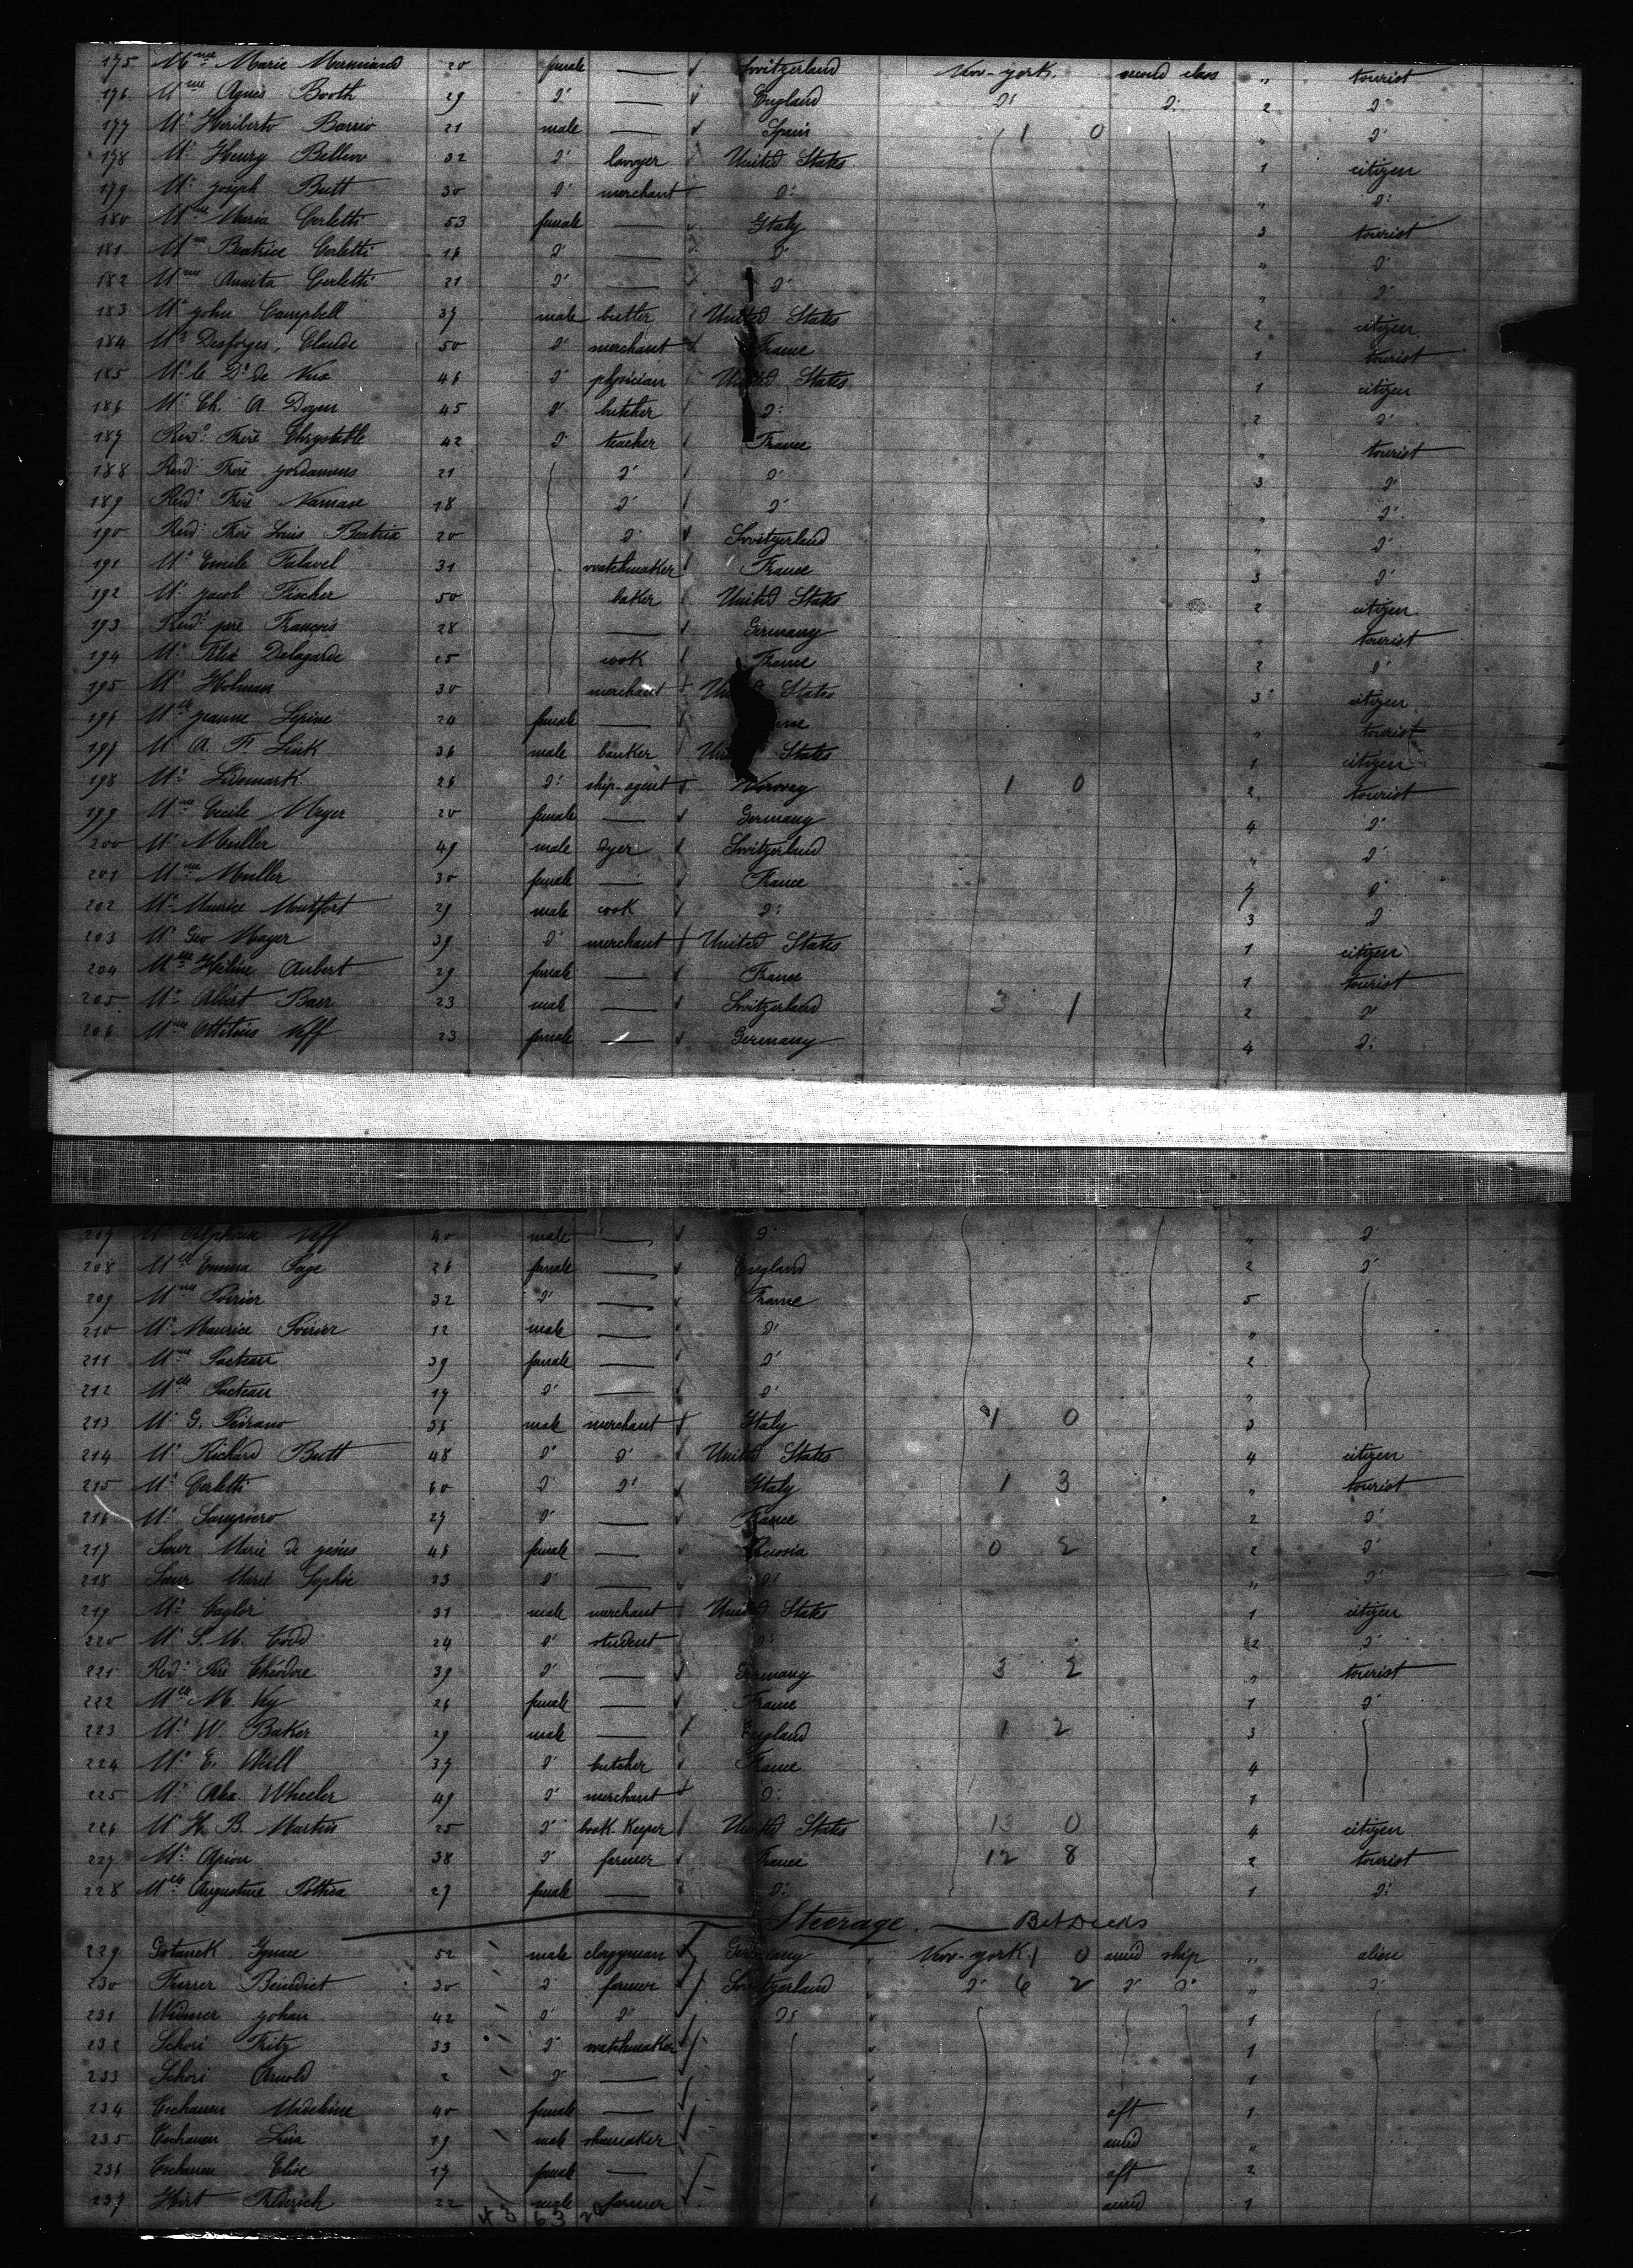 175 Mme Marie 20 female — Switzerland New-york. second class " tourist
176 Mme Agnes Booth 29 do — England do do 2 do
177 Mr Heriberto Barrio 21 male — Spain 1 0 " do
178 Mr Henry Bellew 32 do lawyer United States 1 citizen
179 Mr Joseph Butt 30 do merchant do " do
180 Mme Maria Cerletti 53 female — Italy 3 tourist
181 Mme Beatrice Cerletti 16 do — do " do
182 Mme Annita Cerletti 21 do — do " do
183 Mr John Campbell 37 male buttler United States 2 citizen
184 Mr Desforges, Claude 50 do merchant France 1 tourist
185 Mr le Dr de 46 do physician United States 1 citizen
186 Mr Ch. A Doyen 45 do butcher do 2 do
187 Revd Frère 42 do teacher France " tourist
188 Revd Frère 21 do do 3 do
189 Revd Frère 18 do do " do
190 Revd Frère Louis Beatrix 20 do Switzerland " do
191 Mr Emile Falavel 31 watchmaker France 3 do
192 Mr Jacob Fischer 50 baker United States 2 citizen
193 Revd père François 28 — Germany " tourist
194 Mr Félix Delagarde 25 cook France 2 do
195 Mr Holman 30 merchant United States 3 citizen
196 Melle Jeanne Lepine 24 female — " tourist
197 Mr A. F. Link 36 male banker United States 1 citizen
198 Mr Lidemark 26 do ship-agent Norway 1 0 2 tourist
199 Mme Cecile Meyer 20 female — Germany 4 do
200 Mr Muller 49 male dyer Switzerland " do
201 Mme Muller 30 female — France 7 do
202 Mr Maurice Montfort 29 male cook do 3 do
203 Mr Geo Mayer 39 do merchant United States 1 citizen
204 Melle Hélène Aubert 29 female — France 1 tourist
205 Mr Albert Baer 23 male — Switzerland 3 1 2 do
206 Mme Neff 23 female — Germany 4 do
207 Mr Neff 40 male — do " do
208 Melle Emma Page 26 female — England 2 do
209 Mme Poirier 32 do — France 5
210 Mr Maurice Poirier 12 male — do "
211 Mme Pacteau 39 female — do 2
212 Melle Pacteau 17 do — do "
213 Mr G. Peirano 36 male merchant Italy 1 0 3
214 Mr Richard Butt 48 do do United States 4 citizen
215 Mr Cerletti 60 do do Italy 1 3 " tourist
216 Mr Sampiero 27 do — France 2 do
217 Sœur Marie de Jésus 46 female — Russia 0 2 2 do
218 Sœur Marie Sophie 23 do — do " do
219 Mr Taylor 31 male merchant United States 1 citizen
220 Mr S. M. Todd 24 do student do 2 do
221 Revd Père Théodore 39 do — Germany 3 2 " tourist
222 Melle M. Vey 26 female — France 1 do
223 Mr W. Baker 29 male — England 1 2 3
224 Mr E. Weill 37 do butcher France 4
225 Mr Alex. Wheeler 49 do merchant do 1
226 Mr H. B. Martin 25 do book-keeper United States 13 0 4 citizen
227 Mr Apiou 38 do farmer France 12 8 2 tourist
228 Melle Augustine Pothea 27 female — do 1 do
Steerage. — Bet Decks
229 Ignace 52 male clergyman Germany New-york. 1 0 amid ship " alien
230 Benedict 30 do farmer Switzerland do 6 2 do do " do
231 Widmer Johan 42 do do do 1
232 Schori Fritz 33 do watchmaker 1
233 Schori Arnold 2 do — 1
234 Madeleine 40 female — aft 1
235 19 male shoemaker amid "
236 Elise 17 female — aft 2
237 Hirt Frederich 22 male farmer amid 1
43 63 20